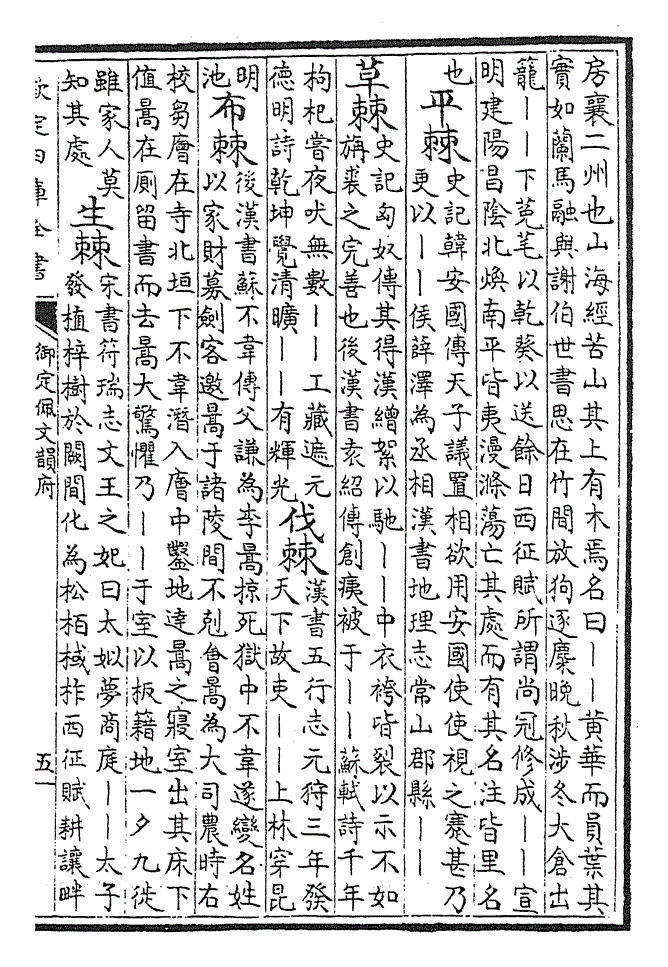 房襄二州也山海經苦山其上有木焉名曰丨丨黃華而員葉其
實如蘭馬融與謝伯世書思在竹間放狗逐麋晚秋涉冬大倉出
籠丨丨下菟芼以乾葵以送餘日西征賦所謂尚冠修成丨丨宣
明建陽昌陰北煥南平皆夷漫滌蕩亡其處而有其名注皆里名
也
平棘
史記韓安國傳天子議置相欲用安國使使視之蹇甚乃
更以丨丨侯薛澤為丞相漢書地理志常山郡縣丨丨
草棘
史記匈奴傳其得漢繒絮以馳丨丨中衣袴皆裂以示不如
旃裘之完善也後漢書袁紹傳創痍被于丨丨蘇軾詩千年
枸杞嘗夜吠無數丨丨工藏遮元
德明詩乾坤覺清曠丨丨有輝光
伐棘
漢書五行志元狩三年發
天下故吏丨丨上林穿昆
明
池
布棘
後漢書蘇不韋傳父謙為李暠掠死獄中不韋遂變名姓
以家財募劍客邀暠于諸陵間不剋會暠為大司農時右
校芻廥在寺北垣下不韋潛入廥中鑿地達暠之寢室出其床下
值暠在厠留書而去暠大驚懼乃丨丨于室以板藉地一夕九徙
雖家人莫
知其處
生棘
宋書符瑞志文王之妃曰太姒夢商庭丨丨太子
發植梓樹於闕間化為松栢棫柞西征賦耕讓畔
欽定四庫全書
御定佩文韻府
五